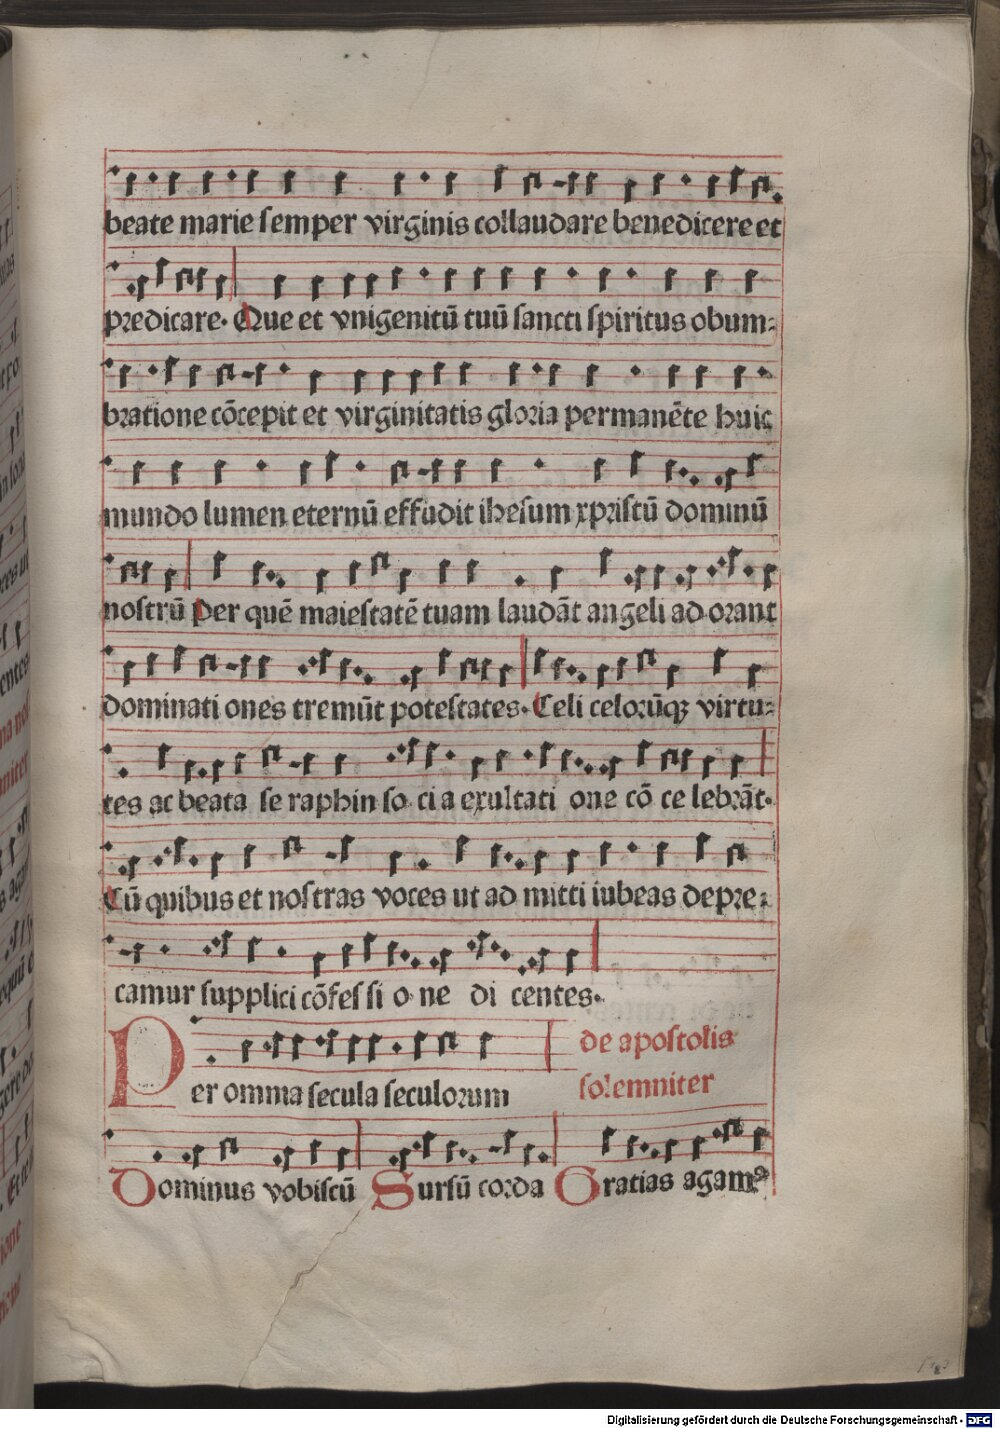 beate marie semper virginis collaudare benedicere et
predicare. Que et vnigenitū tuū sancti spiritus obum-
bratione cōcepit et virginitatis gloria permanēte huic
mundo lumen eternū effudit ihesum xpristū dominū
nostrū Per quē maiestatē tuam laudāt angeli ad orant
dominati ones tremūt potestates. Celi celorūqꝫ virtu-
tes ac beata se raphin so ci a exultati one cō ce lebrāt.
Cū quibus et nostras voces ut ad mitti iubeas depre-
camur supplici cōfes si o ne di centes.
Per omnia secula seculorum
de apostolis
solemniter
Dominus vobiscū Sursū corda Gratias agamꝰ
Digitalisierung gefördert durch die Deutsche Forschungsgemeinschaft - DFG